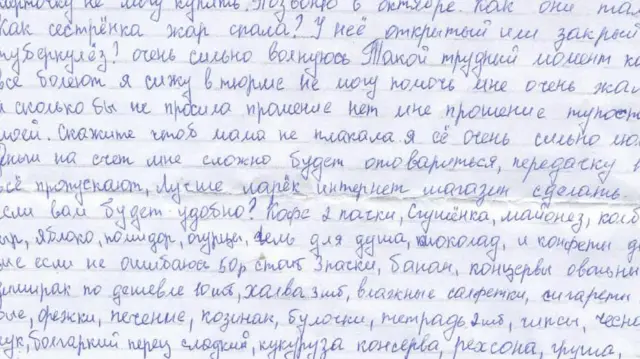 не могу купить. Позвоню в октябре. Как они
Как сестрёнка жар спала? У неё открытый или закрый
туберкулёз? очень сильно волнуюсь Такой трудний момент
всё болеют я сижу в тюрме не могу помочь мне очень жал
и сколько бы не просила прошение нет мне прошение тупост
моей. Скажите чтоб мама не плакала я её очень сильно лю
на счёт мне сложно будет отовариться, передачку
всё пропускают, Лучше ларёк интернет магазин сделать.
если вам будет удобно? Кофе 2 пачки, Сгушёнка, майонез, колб
сыр, яблоко, помидор, огурци, гель для душа, шоколад, и конфети
если не ошибаюсь 50р стоит 3пачки, банан, концерви
по дешевле 10шт, халва 3шт, влажные салфетки, сигарети
орежки, печение, козинак, булочки, тетрадь 2шт, чипсы, чесно
лук, болгаркий перец сладкий, кукуруза консерва, рехсона, груша,